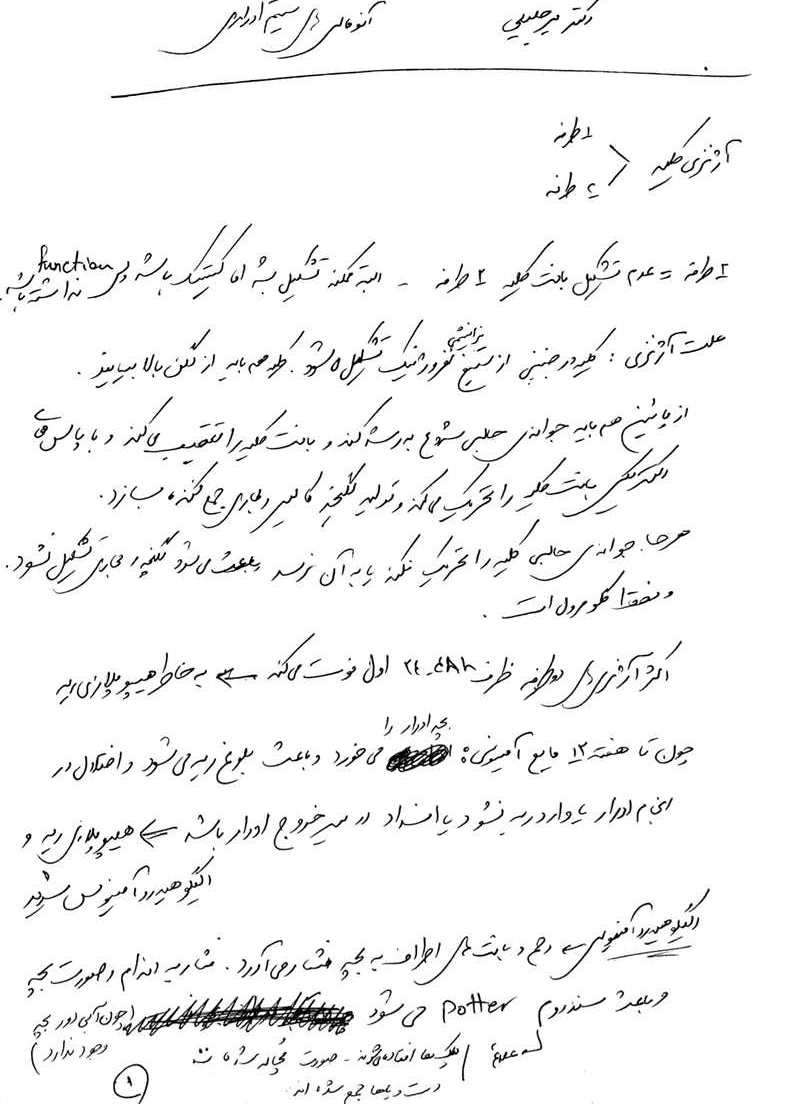 دکتر میرحبیبی آنومالی های سیستم ادراری
آژنزی کلیه
۱ طرفه
۲ طرفه
۱ طرفه = عدم تشکیل بافت کلیه ۱ طرفه - البته ممکنه تشکیل بشه اما کیستیک باشه ولی function نداشته باشه.
علت آژنزی : کلیه در جنینی از ستیغ نفروژنیک تشکیل میشود. کلیه هم باید از لگن بالا بیایند.
از پائین هم باید جوانه ی حالبی شروع به رشد کند و بافت کلیه را تعقیب می کند و با پالس های
بافت کلیه را تحریک می کند و تولید لگنچه کالیس و مجاری جمع کننده میسازد.
هرجا جوانه ی حالبی کلیه را تحریک نکند یا به آن نرسد باعث می شود لگنچه و مجاری تشکیل نشود.
و فقط گلومرول است.
اکثر آژنزی های دوطرفه ظرف ۲۴-۴۸h اول فوت می کند ← به خاطر هیپوپلازی ریه
چون تا هفته ۱۲ مایع آمنیونی بچه ادرار را می خورد و باعث بلوغ ریه می شود و اختلال در
انجام ادرار یا وارد ریه نشود یا انسداد در مسیر خروج ادرار باشه ← هیپوپلازی ریه و
الیگوهیدروآمنیوس شدید
الیگوهیدروآمنیوس ← رحم و بافت های اطراف به بچه فشار می آورد. فشار به اندام و صورت بچه
و باعث سندروم Potter می شود (چون آبی دور بچه وجود ندارد)
علائم پلک ها افتاده می شوند - صورت مچاله شده است
دست و پاها جمع شده اند
۱